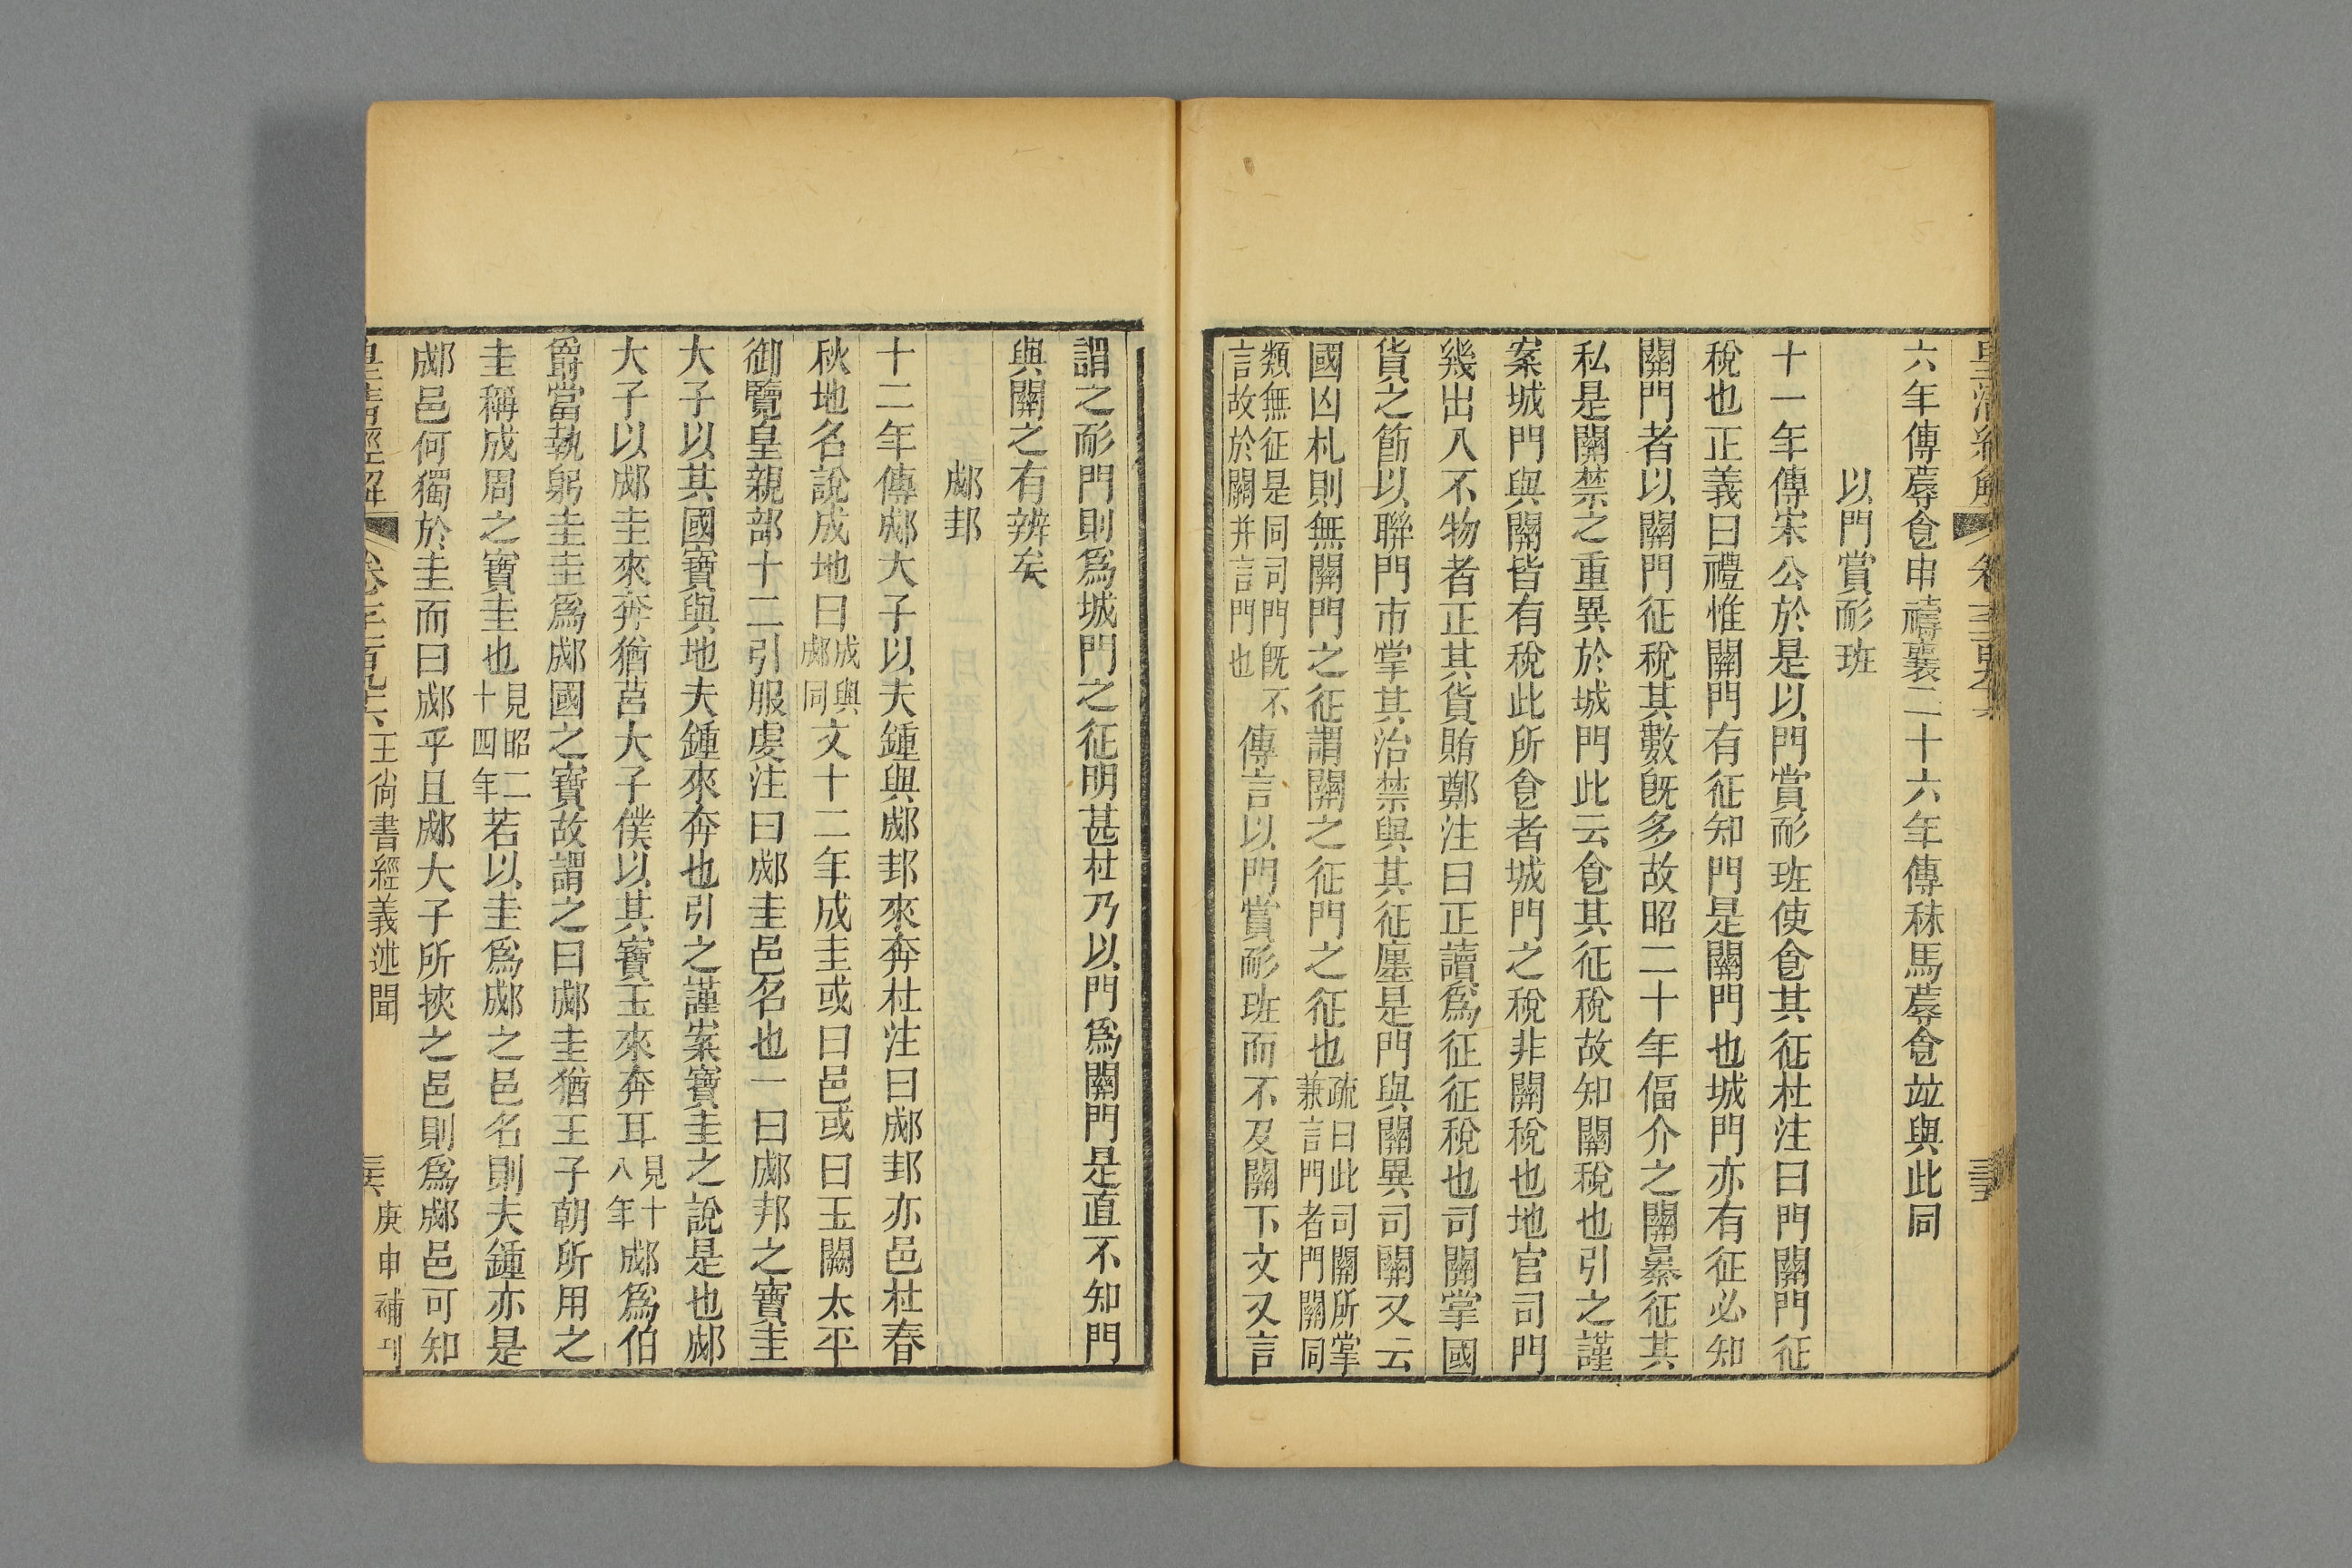 皇清經解
六年傳蓐食申禱襄二十六年傳秣馬蓐食竝與此同
以門賞耏班
十一年傳宋公於是以門賞耏班使食其征杜注曰門關門征
稅也正義曰禮惟關門有征知門是關門也城門亦有征必知
關門者以關門征稅其數旣多故昭二十年偪介之關㬥征其
私是關禁之重異於城門此云食其征稅故知關稅也引之謹
案城門與關皆有稅此所食者城門之稅非關稅也地官司門
幾出入不物者正其貨賄鄭注曰正讀爲征征稅也司關掌國
貨之節以聯門市掌其治禁與其征廛是門與關異司關又云
國凶札則無關門之征謂關之征門之征也疏曰此司關所掌兼言門者門關同
類無征是同司門旣不言故於關并言門也傳言以門賞耏班而不及關下文又言
謂之耏門則爲城門之征明甚杜乃以門爲關門是直不知門
與關之有辨矣
郕邽
十二年傳郕大子以夫鍾與郕邽來奔杜注曰郕邽亦邑杜春
秋地名說成地曰成與郕同文十二年成圭或曰邑或曰玉闕太平
御覽皇親部十二引服虔注曰郕圭邑名也一曰郕邦之寶圭
大子以其國寶與地夫鍾來奔也引之謹案寶圭之說是也郕
大子以郕圭來奔猶莒大子僕以其寶玉來奔耳見十八年郕爲伯
爵當執躬圭圭爲郕國之寶故謂之曰郕圭猶王子朝所用之
圭稱成周之寶圭也見昭二十四年若以圭爲郕之邑名則夫鍾亦是
郕邑何獨於圭而曰郕乎且郕大子所挾之邑則爲郕邑可知
皇清經解 王尙書經義述聞 庚申補刊